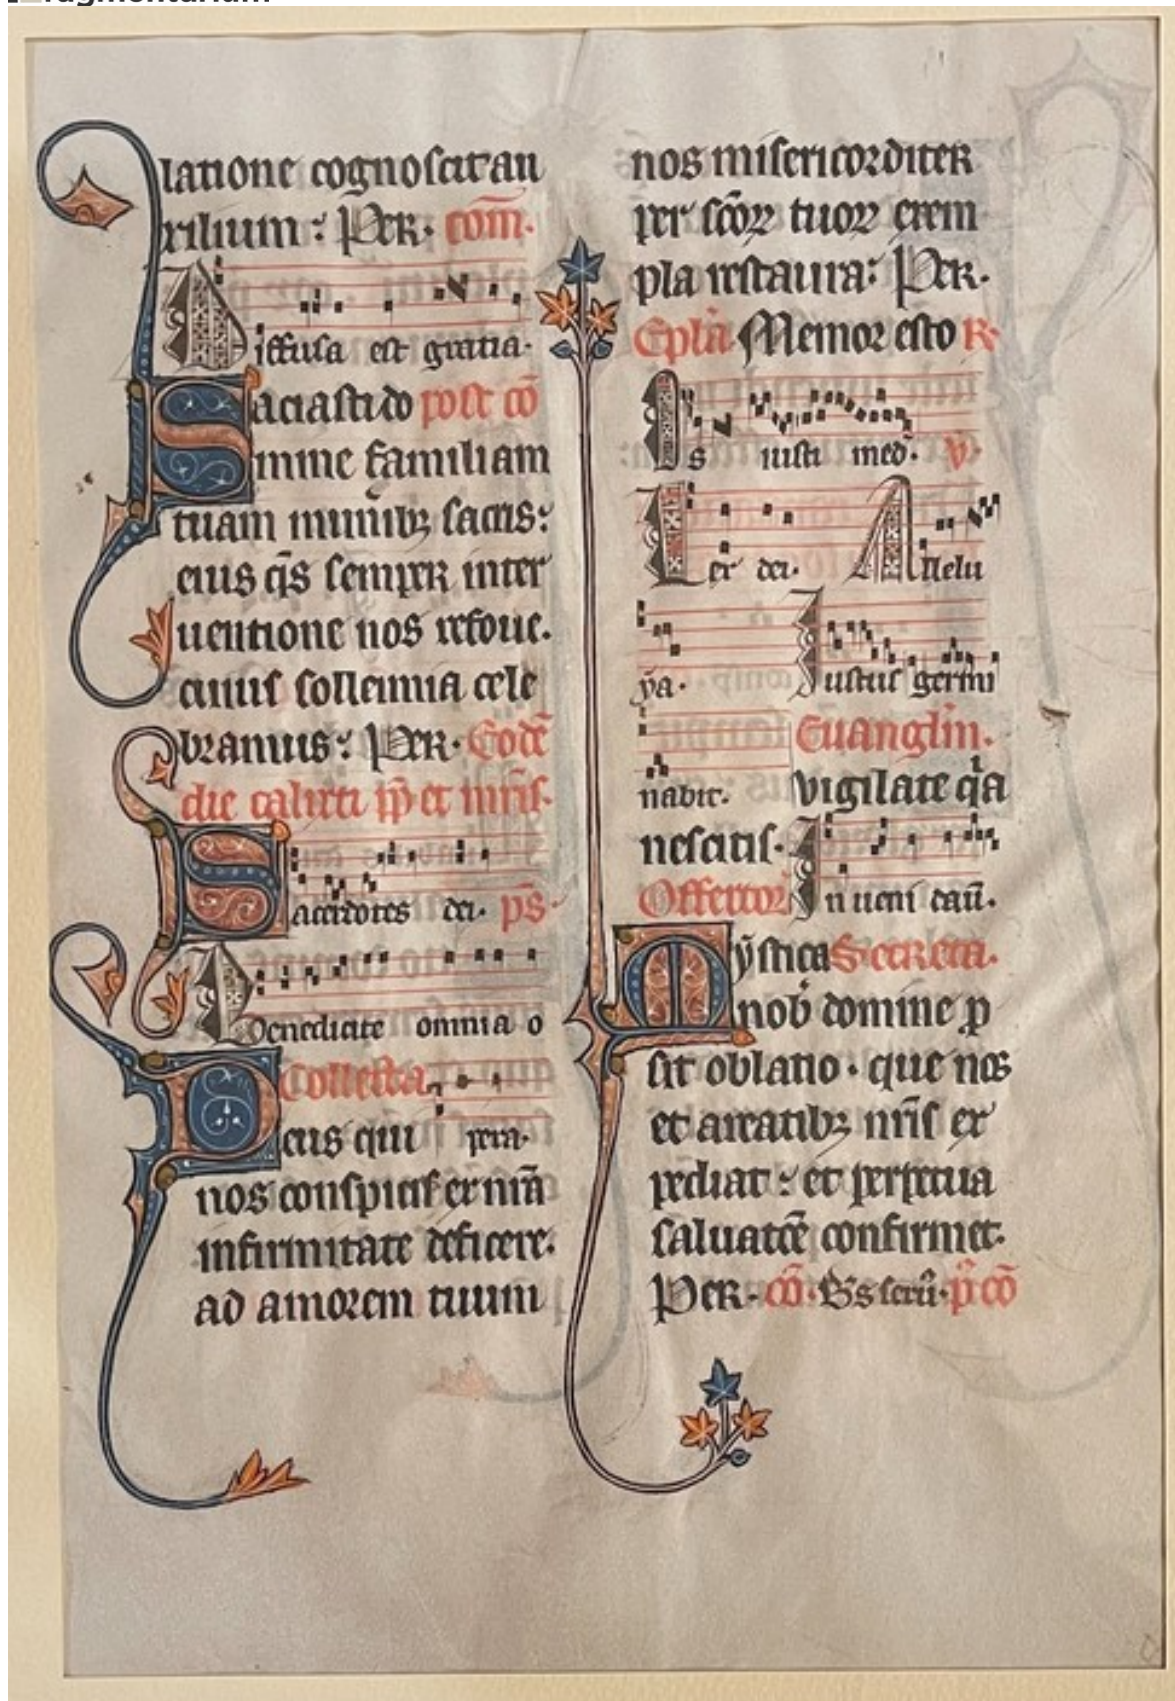 latione cognoscit au
xilium : Per · com̄ ·
Diffusa est gratia ·
Saciasti do post cō
mine familiam
tuam munīb; sacris :
eius q̄s semper inter
uentione nos refoue ·
cuius sollemnia cele
bramus : Per · Eodē
die calixti pp̄ et mr̄is ·
Sacerdotes dei · p̄s ·
Benedicite omnia o
Collecta
Deus qui pera ·
nos conspicis ex nr̄a
infirmitate deficere ·
ad amorem tuum
nos misericorditer
per sc̄oꝝ tuoꝝ exem
pla restaura : Per ·
Epl̄a Memor esto R ·
Os iusti med̄ · v̄ ·
Lex dei · Allelu
ya · Iustus germi
Euangl̄m ·
nabit · Vigilate qͣa
nescitis ·
Offertor̄ Inueni dau̅ ·
Mystica Secreta ·
nob̄ domine ꝓ
sit oblatio · que nos
et a reatib; nr̄is ex
pediat : et perpetua
saluatōe confirmet ·
Per · cō · B̄s seru̅ · p̄ cō